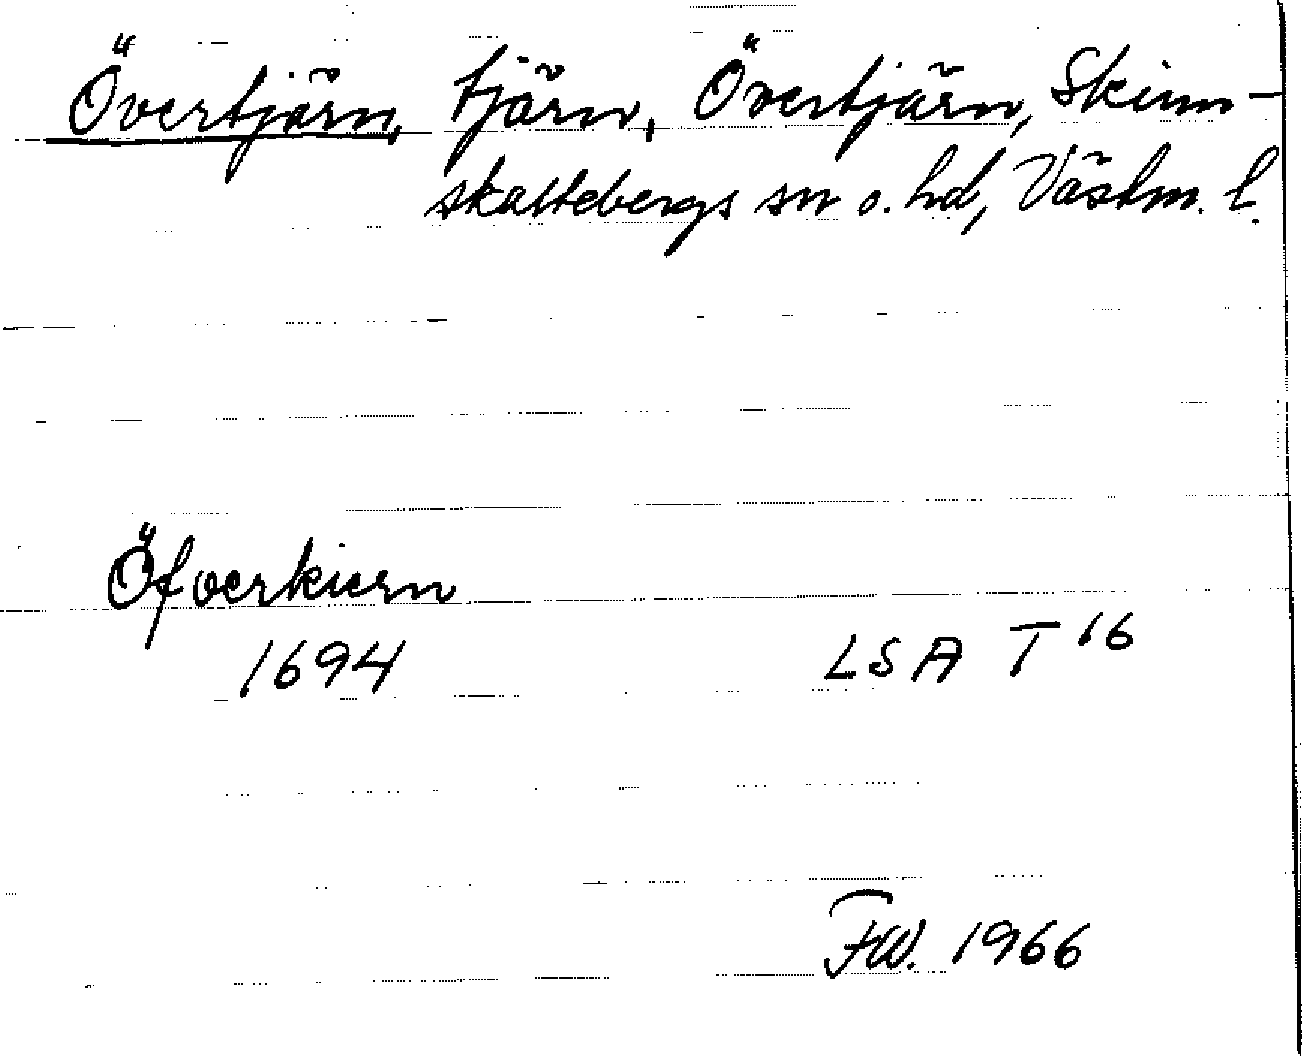 Övertjärn, tjärn, Övertjärn, Skinn-
skattebergs sn o. hd, Västm. l.
Öfverkiern
1694 LSA T 16
FW. 1966